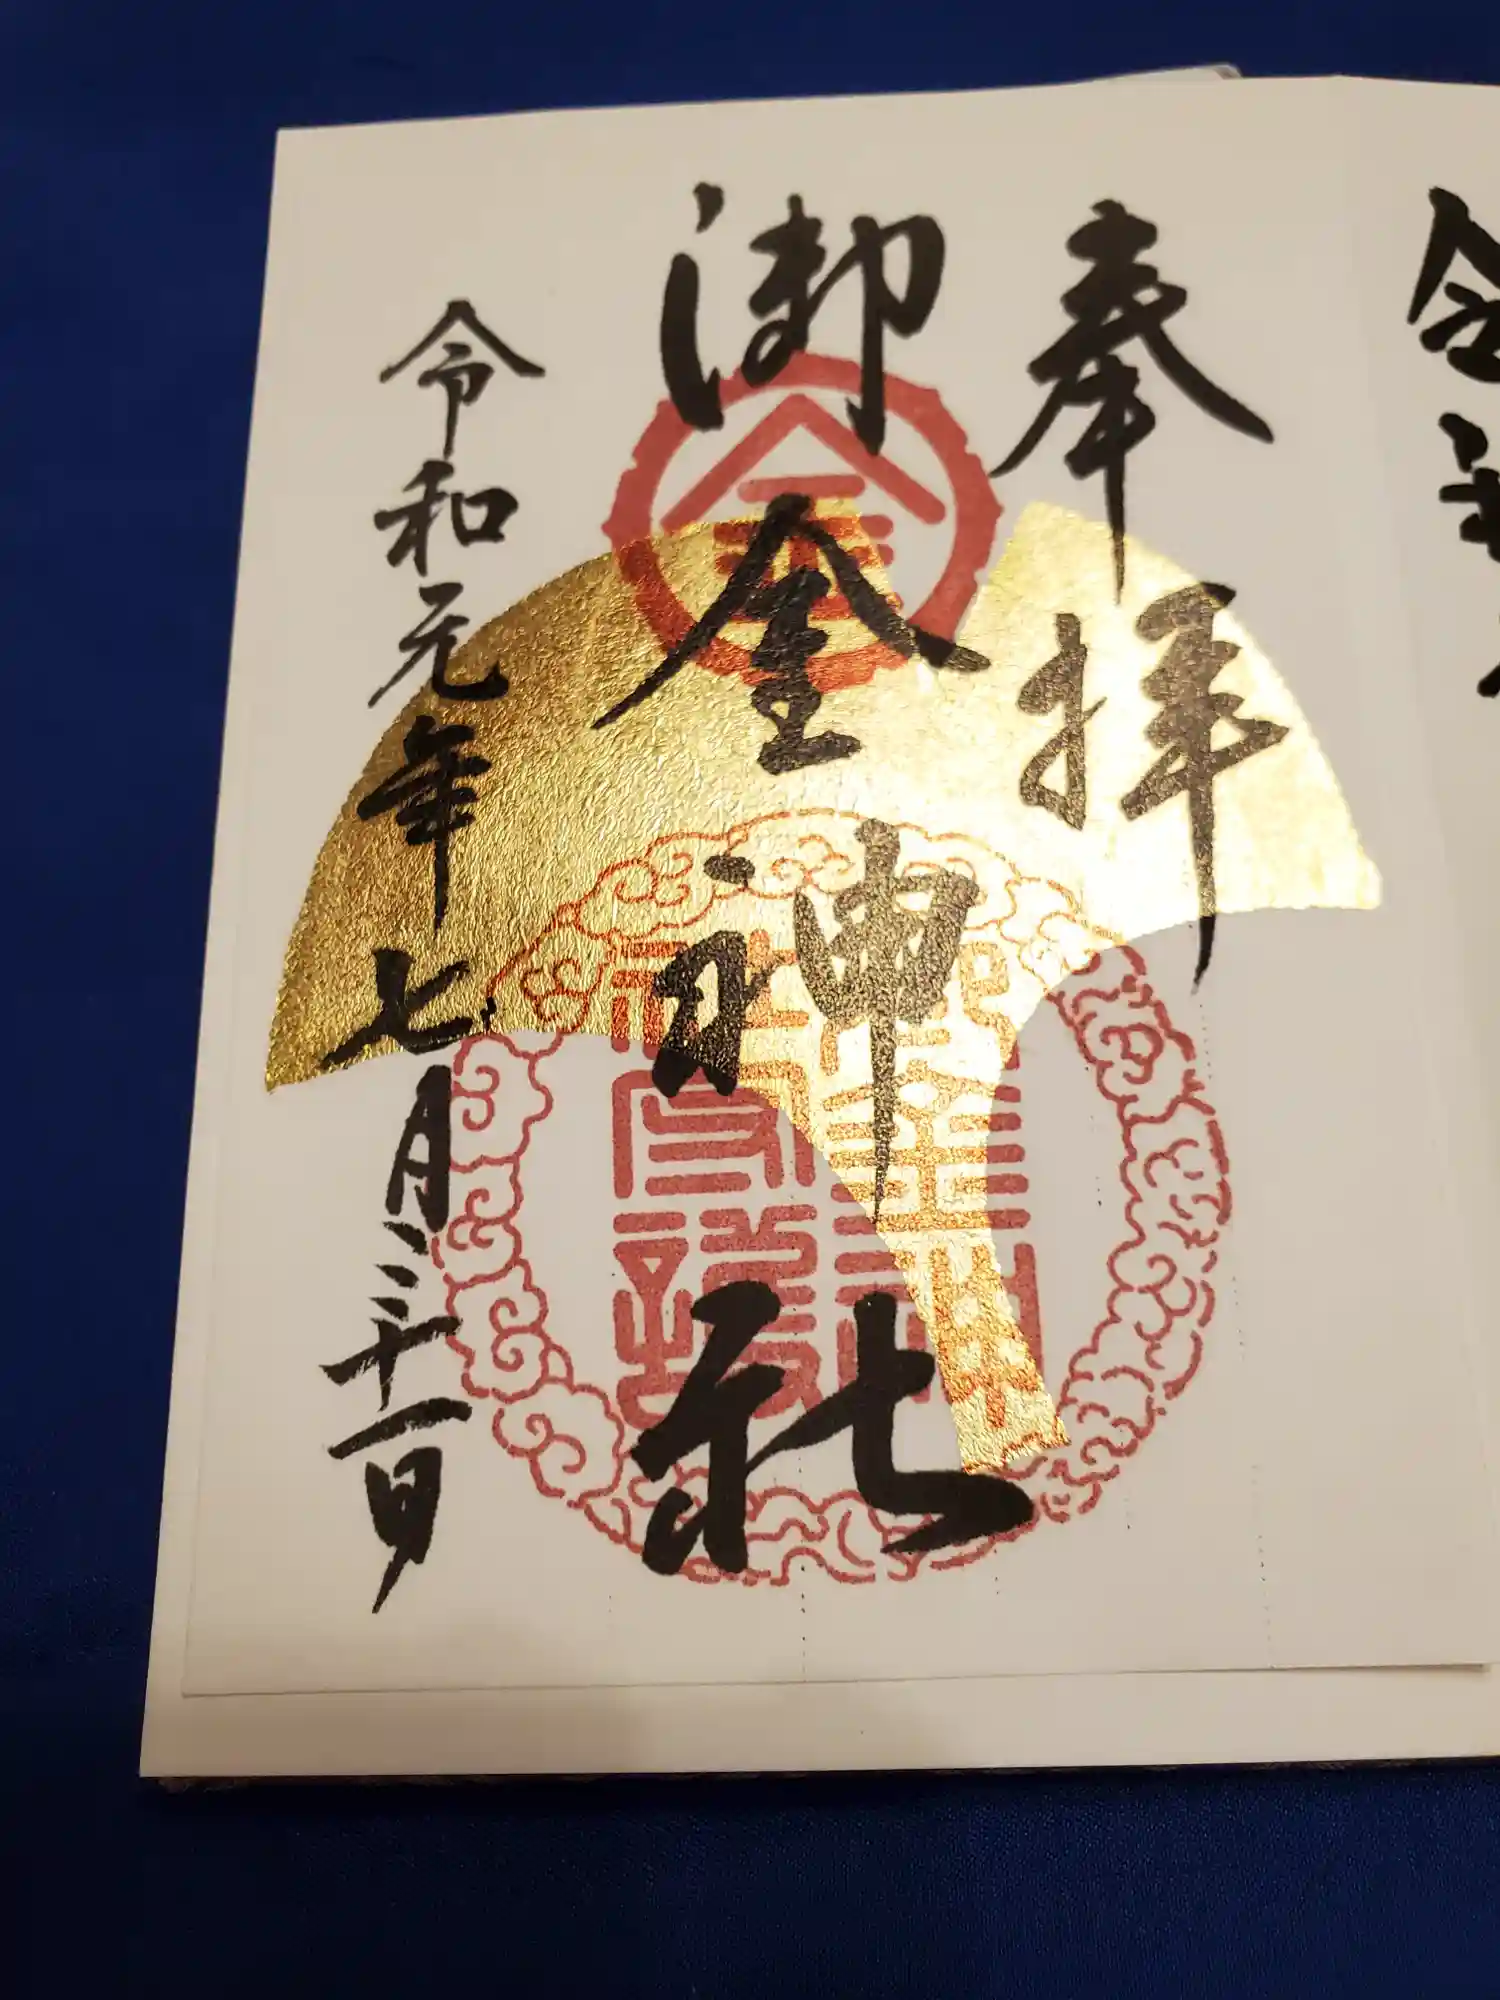 奉拝
御金神社
令和元年七月三十一日
金